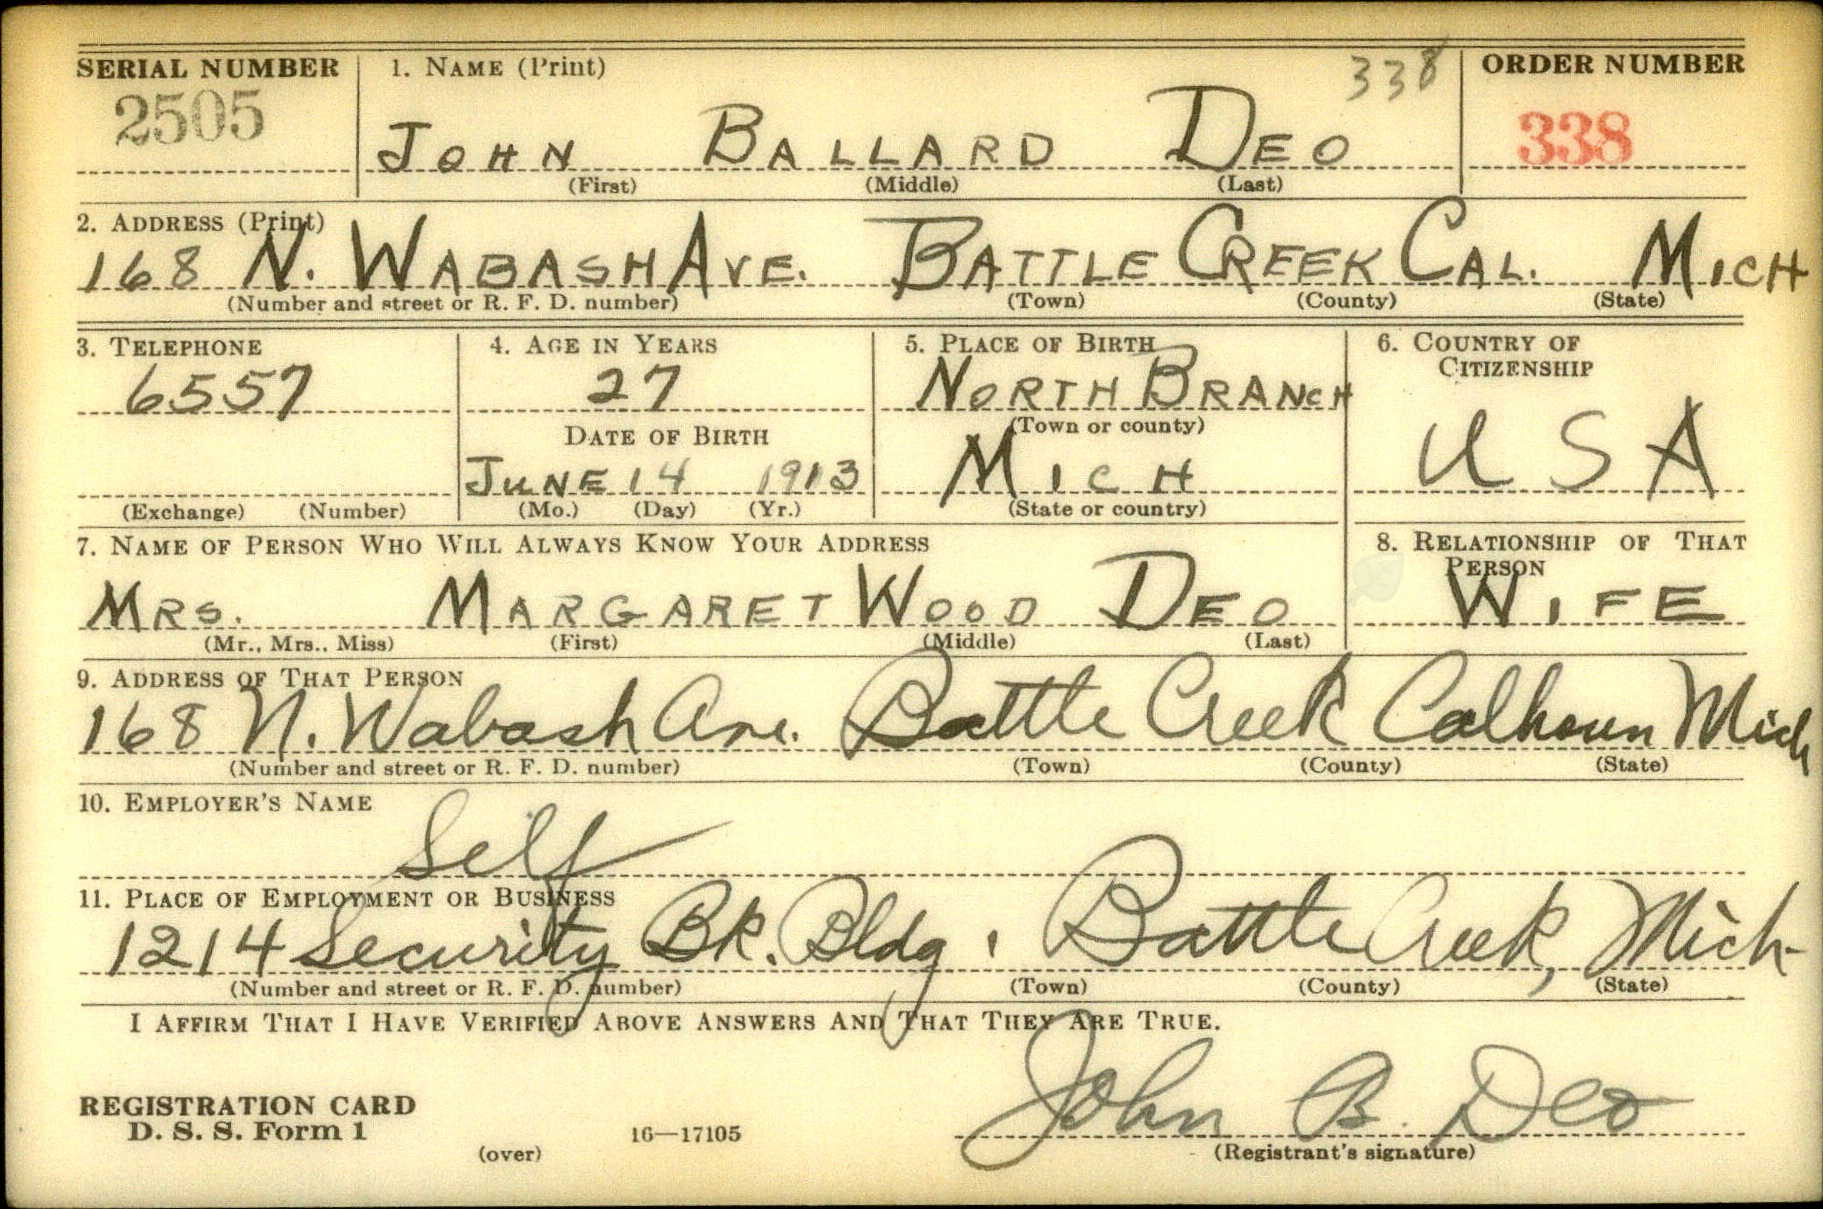 SERIAL NUMBER 1. NAME (Print) 338 ORDER NUMBER
2505 JOHN BALLARD DEO 338
(First) (Middle) (Last)
2. ADDRESS (Print)
168 N. WABASH AVE. BATTLE CREEK CAL. MICH
(Number and street or R. F. D. number) (Town) (County) (State)
3. TELEPHONE 4. AGE IN YEARS 5. PLACE OF BIRTH 6. COUNTRY OF CITIZENSHIP
6557 27 NORTH BRANCH
DATE OF BIRTH (Town or county)
JUNE 14 1913 MICH USA
(Exchange) (Number) (Mo.) (Day) (Yr.) (State or country)
7. NAME OF PERSON WHO WILL ALWAYS KNOW YOUR ADDRESS 8. RELATIONSHIP OF THAT PERSON
MRS. MARGARET WOOD DEO WIFE
(Mr., Mrs., Miss) (First) (Middle) (Last)
9. ADDRESS OF THAT PERSON
168 N. Wabash Ave. Battle Creek Calhoun Mich
(Number and street or R. F. D. number) (Town) (County) (State)
10. EMPLOYER'S NAME
Self
11. PLACE OF EMPLOYMENT OR BUSINESS
1214 Security Bk. Bldg, Battle Creek, Mich
(Number and street or R. F. D. number) (Town) (County) (State)
I AFFIRM THAT I HAVE VERIFIED ABOVE ANSWERS AND THAT THEY ARE TRUE.
John B. Deo
REGISTRATION CARD
D. S. S. Form 1 16—17105
(over) (Registrant's signature)